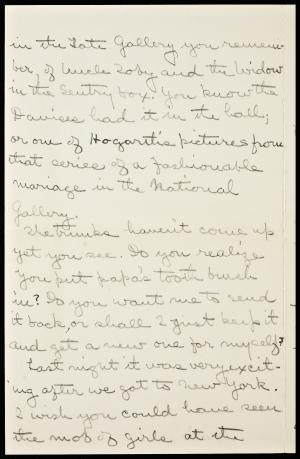 in the Tate Gallery you remem-
ber, of Uncle Toby and the Widow
in the Sentry box. You know the
Davises had it in the hall;
or one of Hogarth's pictures from
that series of a fashionable
marriage in the National
Gallery.
The trunks haven't come up
yet you see. Do you realize
you put papa's tooth brush
in? Do you want me to send
it back, or shall I just keep it
and get a new one for myself?
Last night it was very excit-
ing after we got to New York.
I wish you could have seen
the mob of girls at the